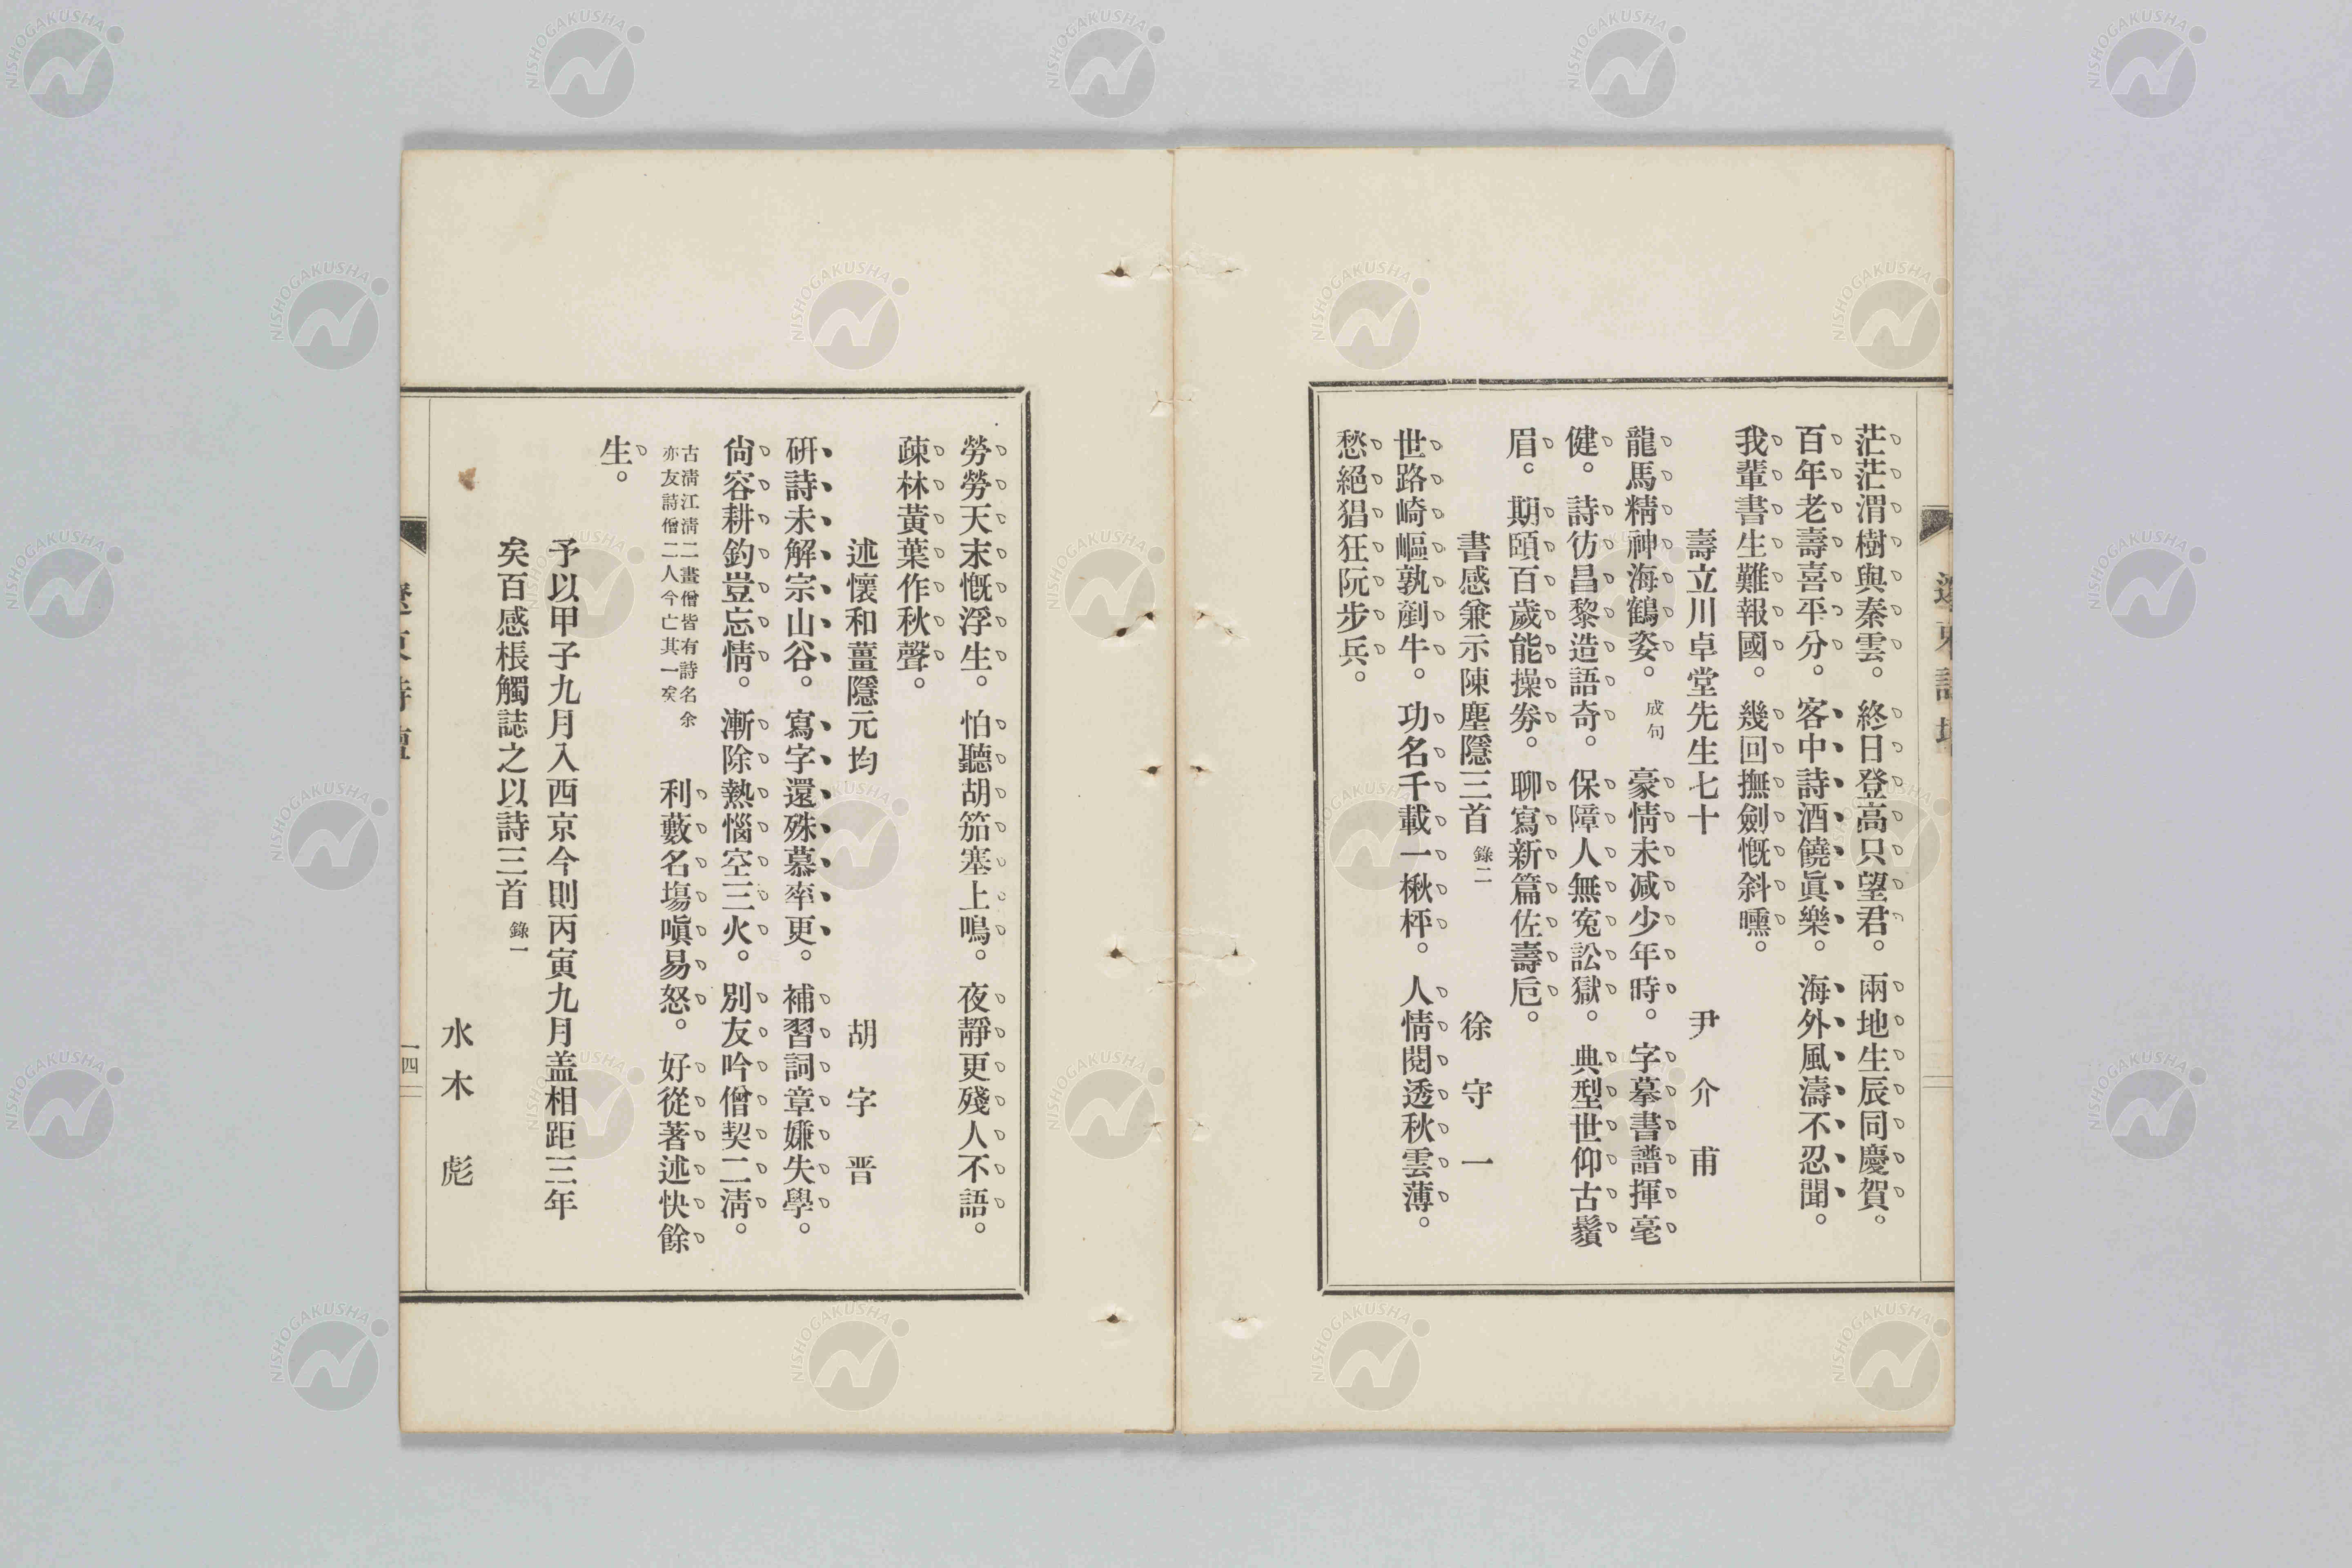 茫茫渭樹與秦雲。終日登高只望君。兩地生辰同慶賀。
百年老壽喜平分。客中詩酒饒眞樂。海外風濤不忍聞。
我輩書生難報國。幾回撫劍慨斜曛。
壽立川卓堂先生七十 尹介甫
龍馬精神海鶴姿。成句 豪情未减少年時。字摹書譜揮毫
健。詩彷昌黎造語奇。保障人無寃訟獄。典型世仰古鬚
眉。期頤百歲能操劵。聊寫新篇佐壽卮。
書感兼示陳塵隱三首 錄二 徐守一
世路崎嶇孰劏牛。功名千載一楸枰。人情閱透秋雲薄。
愁絕猖狂阮步兵。
勞勞天末慨浮生。怕聽胡笳塞上鳴。夜靜更殘人不語。
疎林黃葉作秋聲。
述懷和薑隱元均 胡字晋
研詩未解宗山谷。寫字還殊慕率更。補習詞章嫌失學。
尙容耕釣豈忘情。漸除熱惱空三火。別友吟僧契二淸。
古淸江淸二畫僧皆有詩名余
亦友詩僧二人今亡其一矣
利藪名塲嗔易怒。好從著述快餘
生。
予以甲子九月入西京今則丙寅九月盖相距三年
矣百感棖觸誌之以詩三首 錄一
水木彪
一四
NISHOGAKUSHA